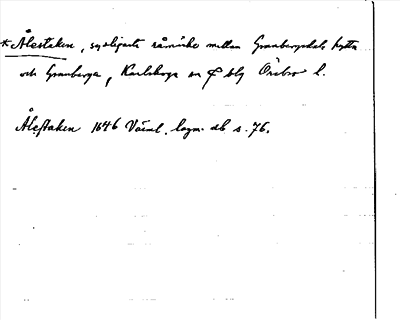 * Ålestaken, synligaste råmärke mellan Granbergsdals hytta
och Granberga, Karlskoga sn ₵ blg Örebro l.
Ålestaken 1646 Värml. lagm. db s. 76.